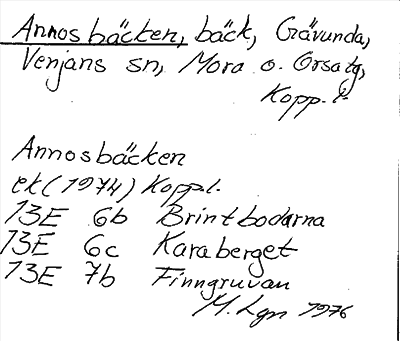 Annosbäcken, bäck, Gävunda,
Venjans sn, Mora o. Orsa tg,
Kopp. l.
Annosbäcken
ek (1974) Kopp.l.
13E 6b Brintbodarna
13E 6c Karaberget
13E 7b Finngruvan
M. Lgn 1976